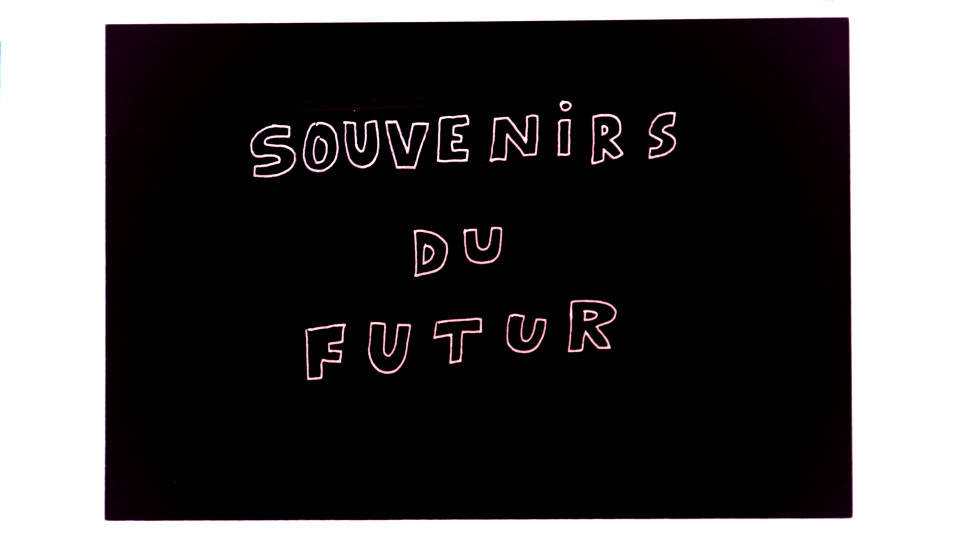 SOUVENiRS
DU
FUTUR